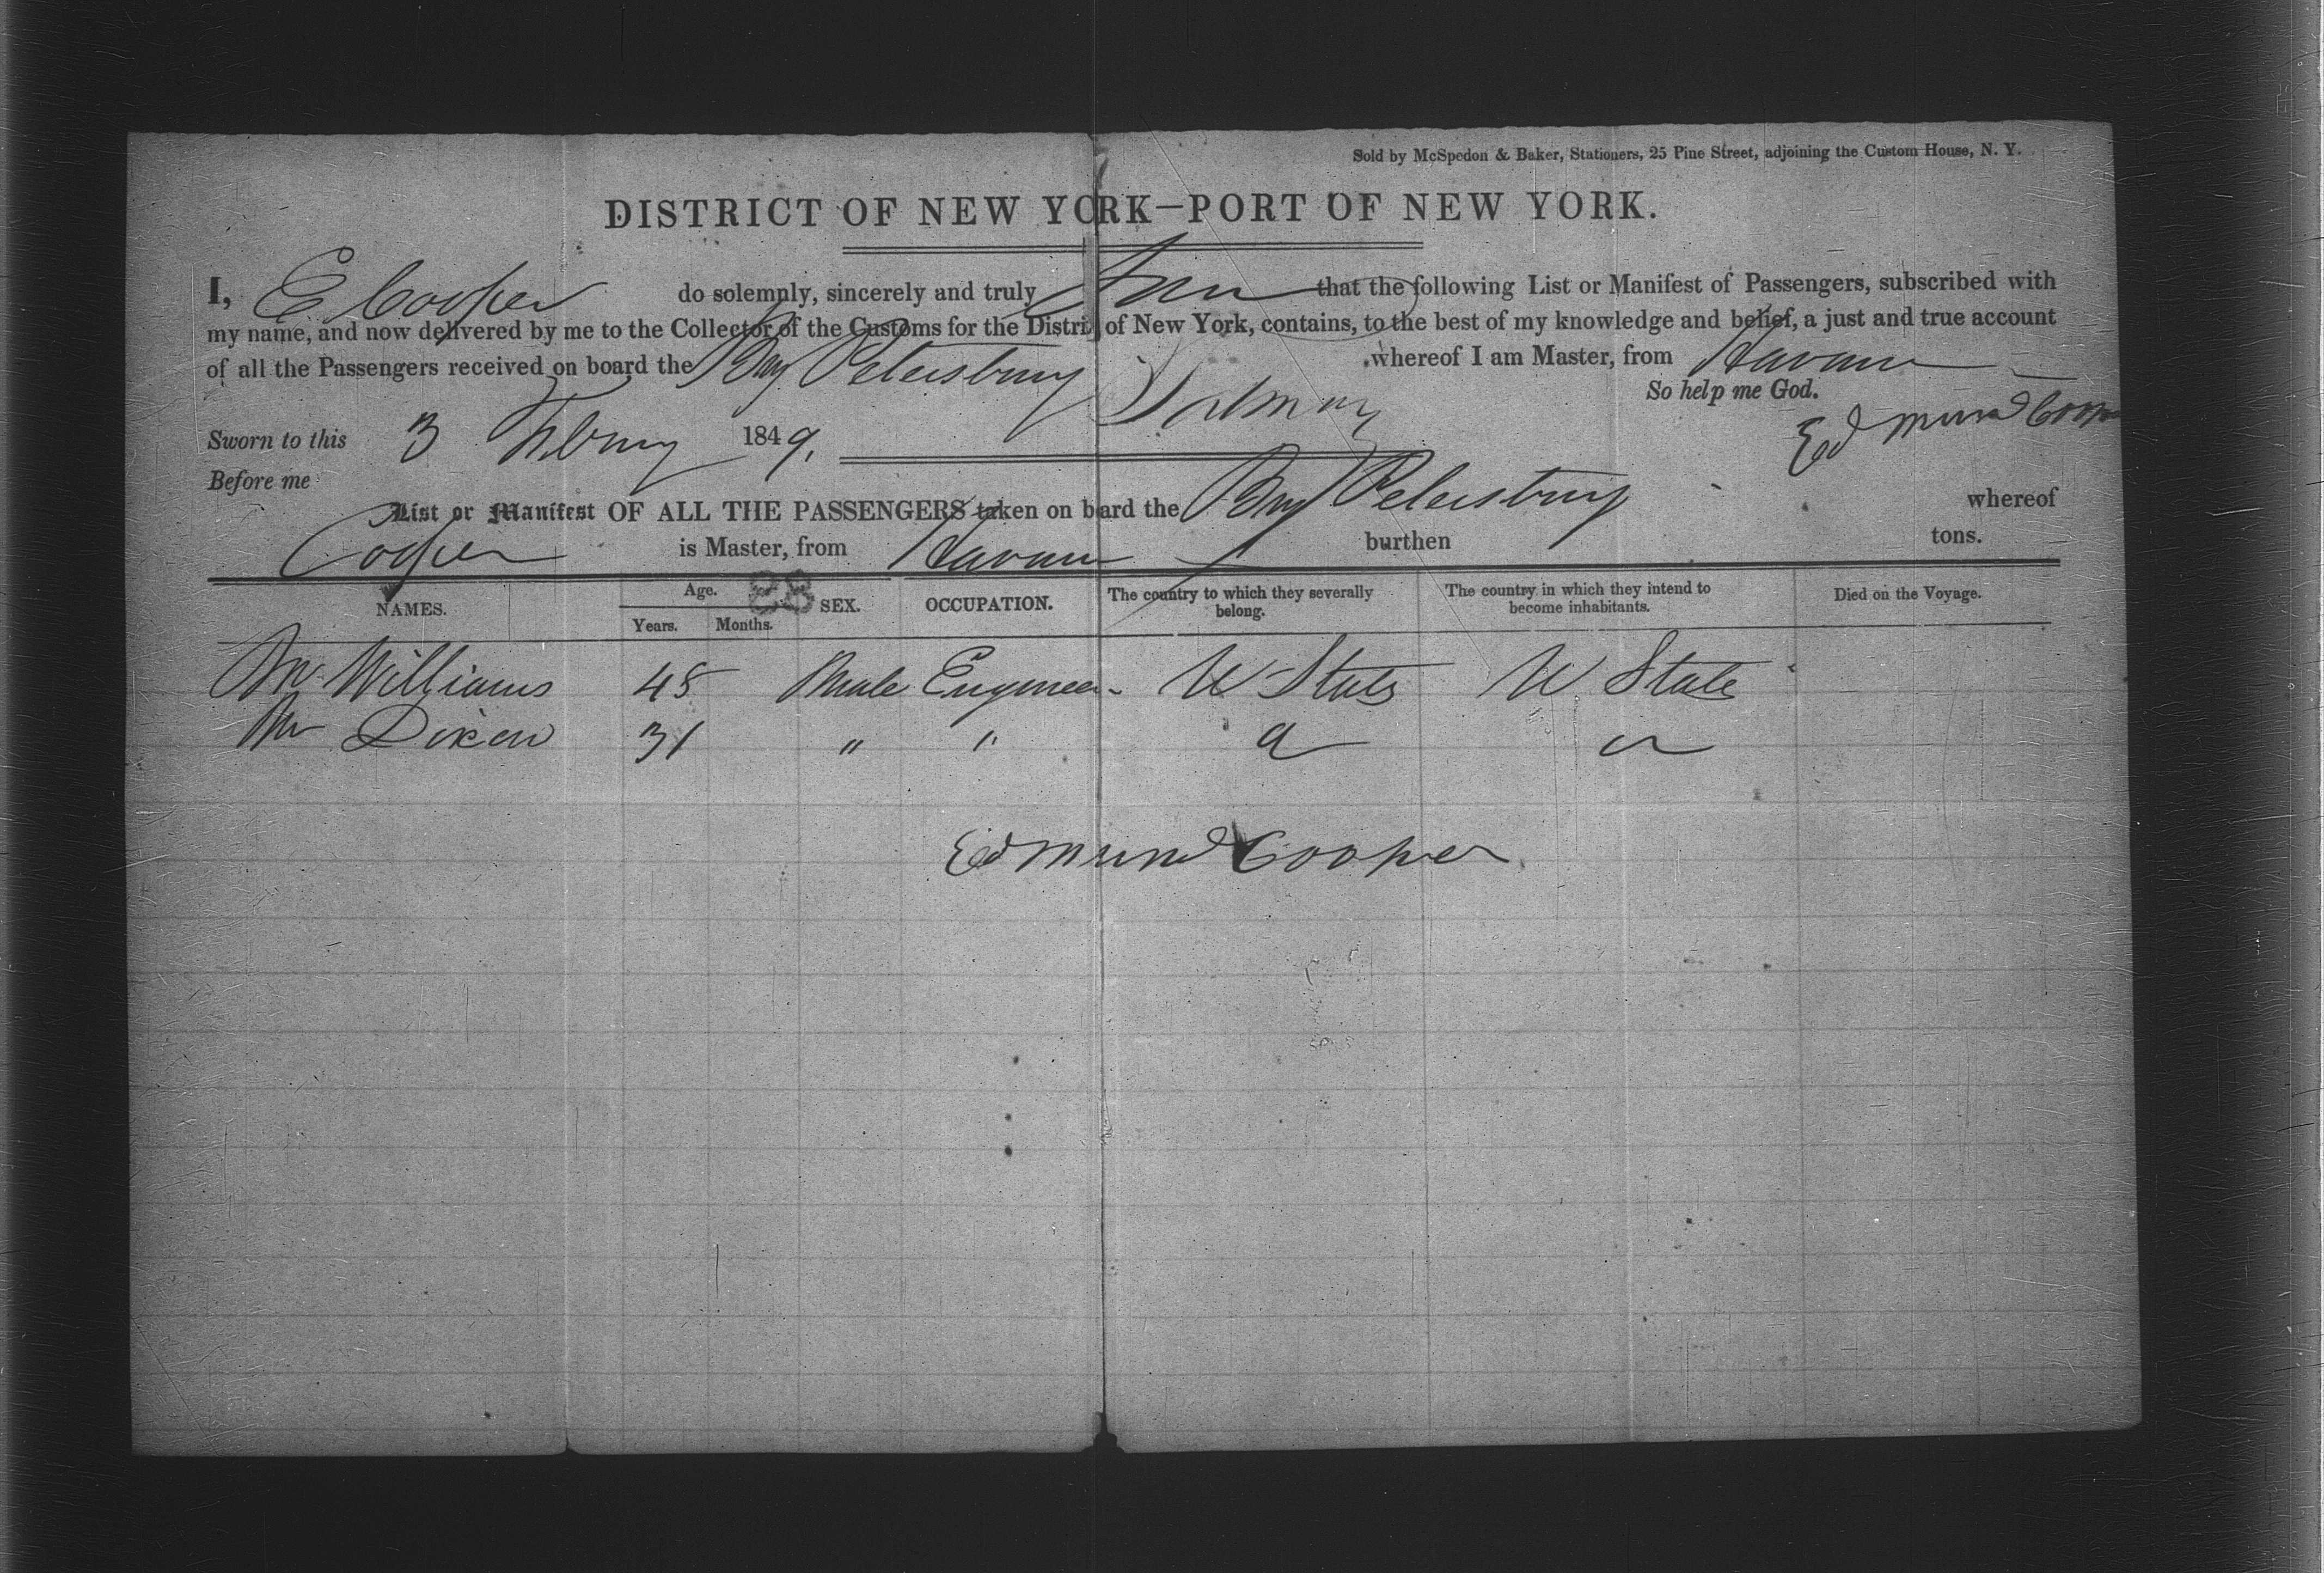 Sold by McSpedon & Baker, Stationers, 25 Pine Street, adjoining the Custom House, N. Y.
DISTRICT OF NEW YORK—PORT OF NEW YORK.
I, E Cooper do solemnly, sincerely and truly that the following List or Manifest of Passengers, subscribed with
my name, and now delivered by me to the Collector of the Customs for the Distri of New York, contains, to the best of my knowledge and belief, a just and true account
of all the Passengers received on board the Brig Petersburg whereof I am Master, from Havana
So help me God.
Sworn to this 3 1849. Edmund Coop
Before me
List or Manifest OF ALL THE PASSENGERS taken on bard the Brig Petersburg whereof
Cooper is Master, from Havana burthen tons.
NAMES. Age. 28 SEX. OCCUPATION. The country to which they severally belong. The country in which they intend to become inhabitants. Died on the Voyage.
Years. Months.
Mr Williams 45 Male Engineer U States U State
Mr Dixon 31 " "
Edmund Cooper